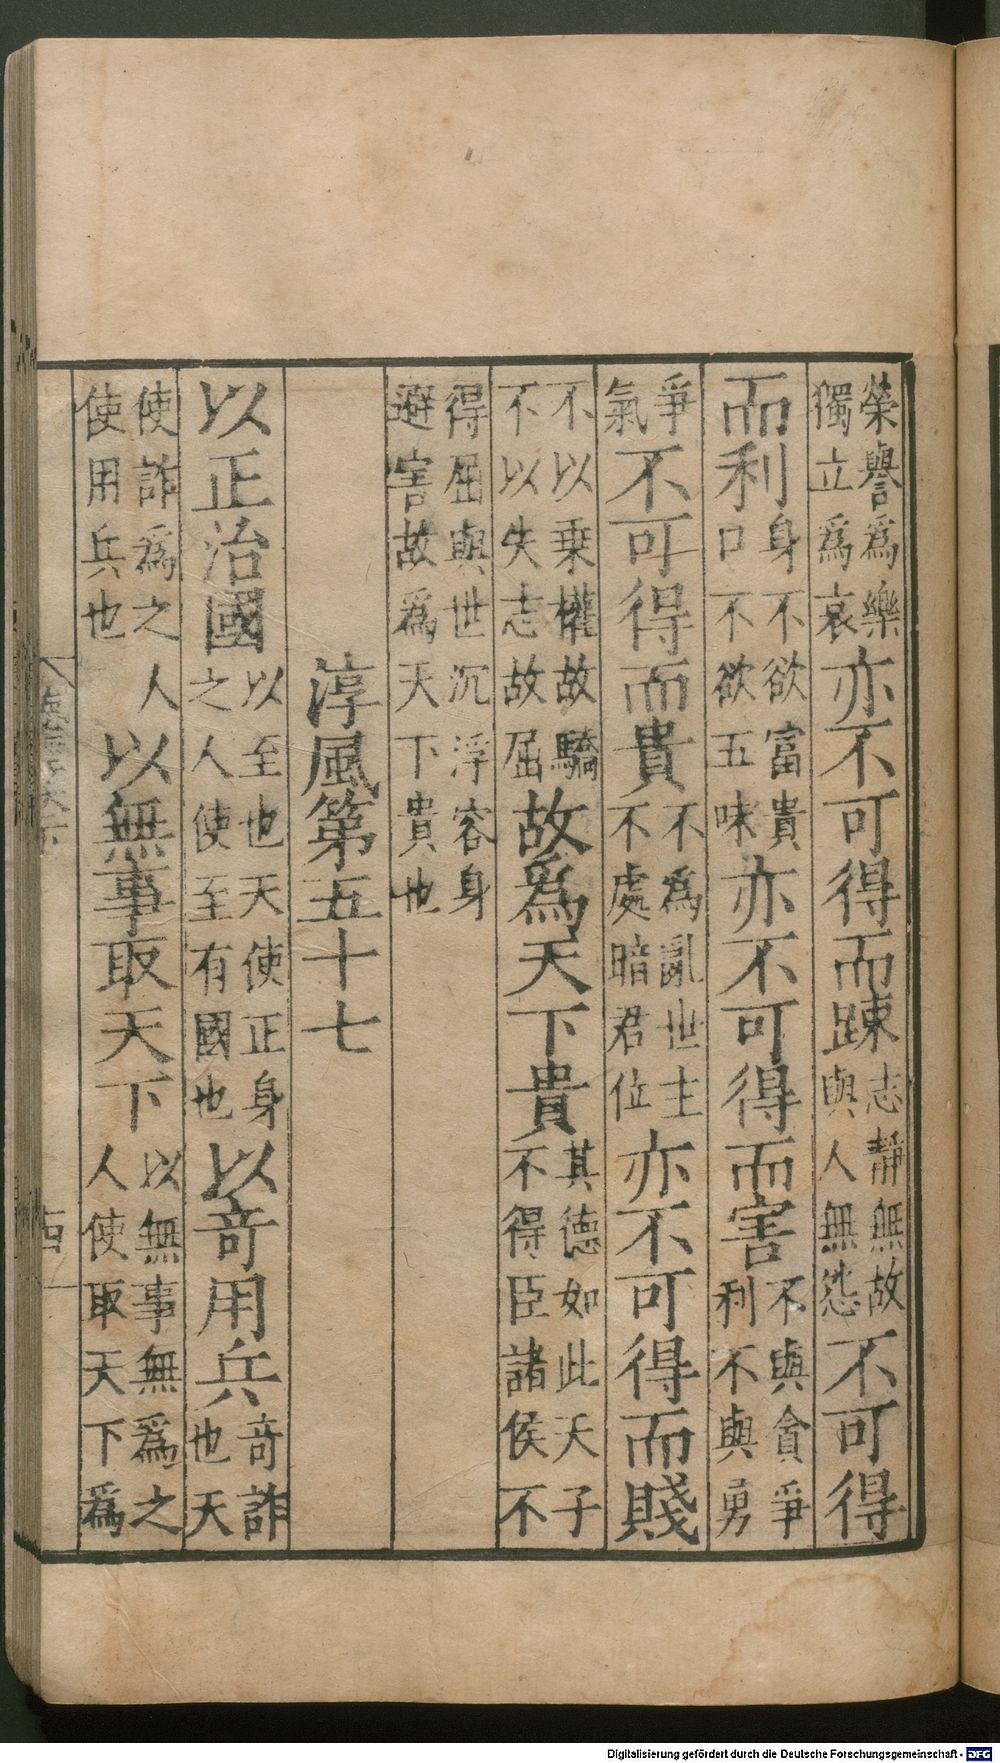 榮譽爲樂獨立爲哀亦不可得而踈志靜無故與人無怨不可得
而利身不欲富貴口不欲五味亦不可得而害不與貪爭利不與勇
爭氣不可得而貴不為亂世主不處暗君位亦不可得而賤
不以乗權故驕不以失志故屈故爲天下貴其德如此天子不得臣諸侯不
得屈與世沉浮容身避害故爲天下貴也
淳風第五十七
以正治國以至也天使正身之人使至有國也以竒用兵竒詐也天
使詐爲之人使用兵也以無事取天下以無事無爲之人使取天下爲
Digitalisierung gefördert durch die Deutsche Forschungsgemeinschaft - DFG